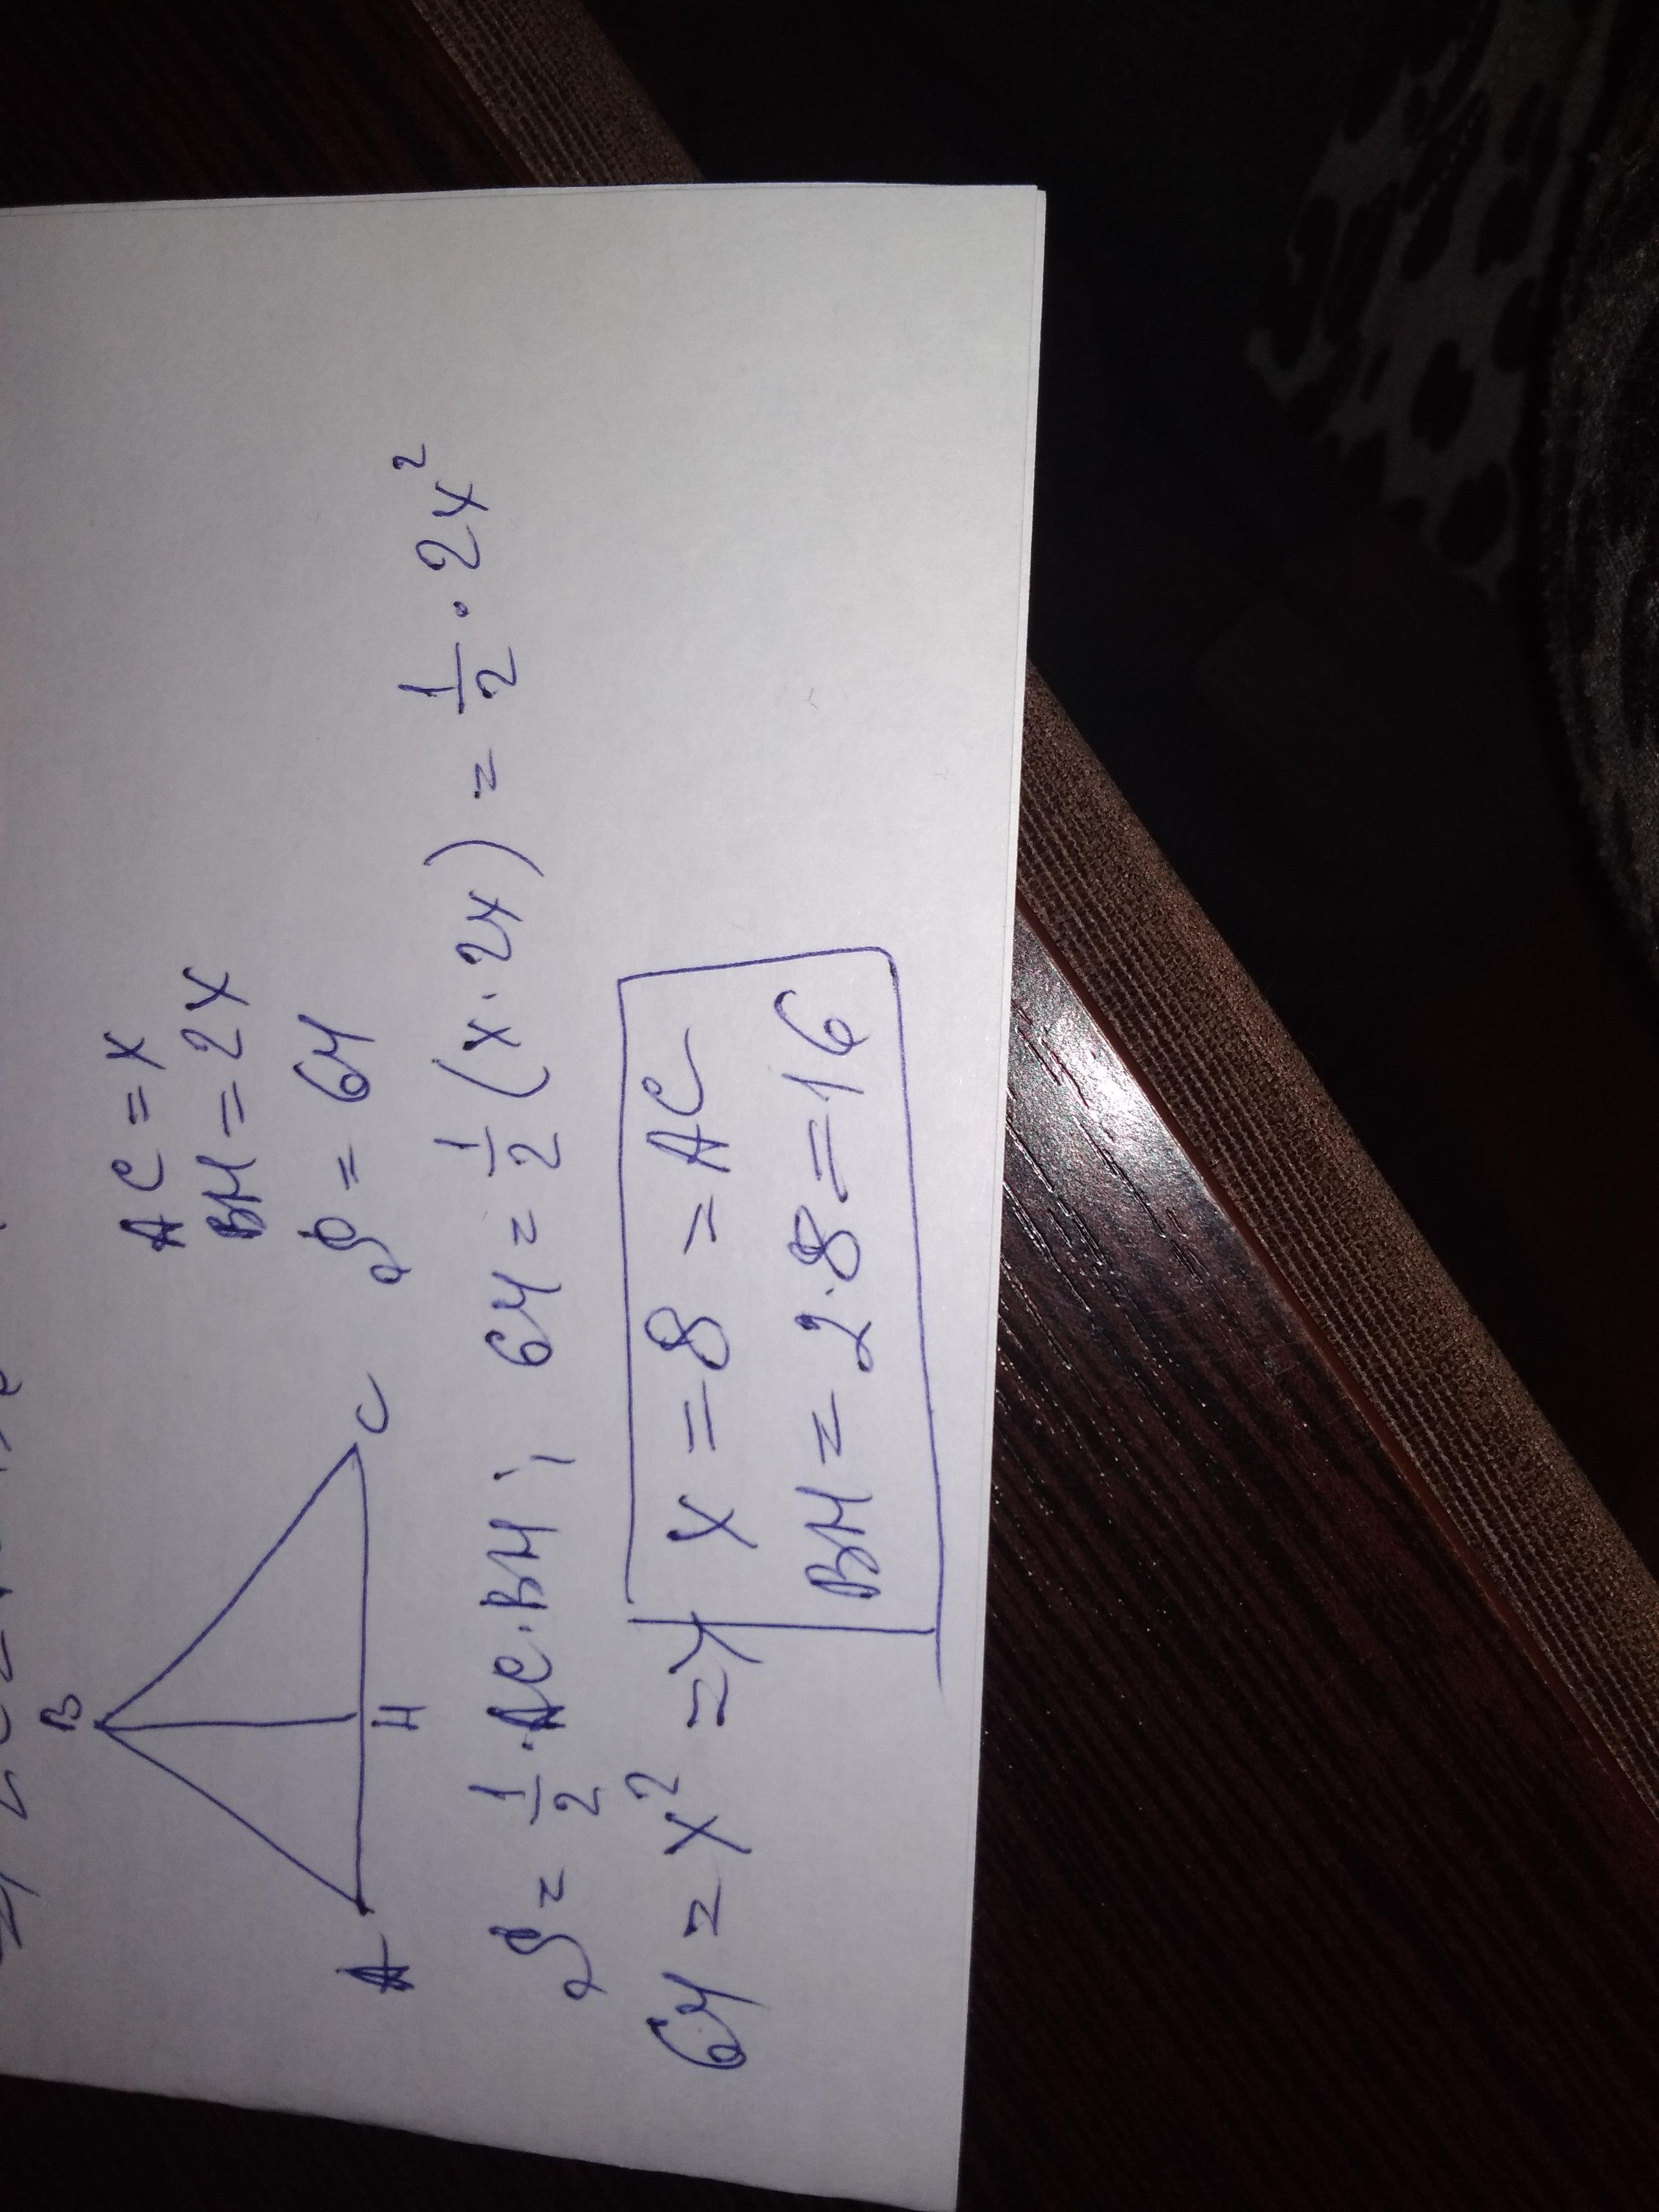 B
A
H
C
AC = x
BH = 2x
S = 64
S = 1/2 · AC · BH ; 64 = 1/2 (x · 2x) = 1/2 · 2x²
64 = x² => x = 8 = AC
BH = 2 · 8 = 16